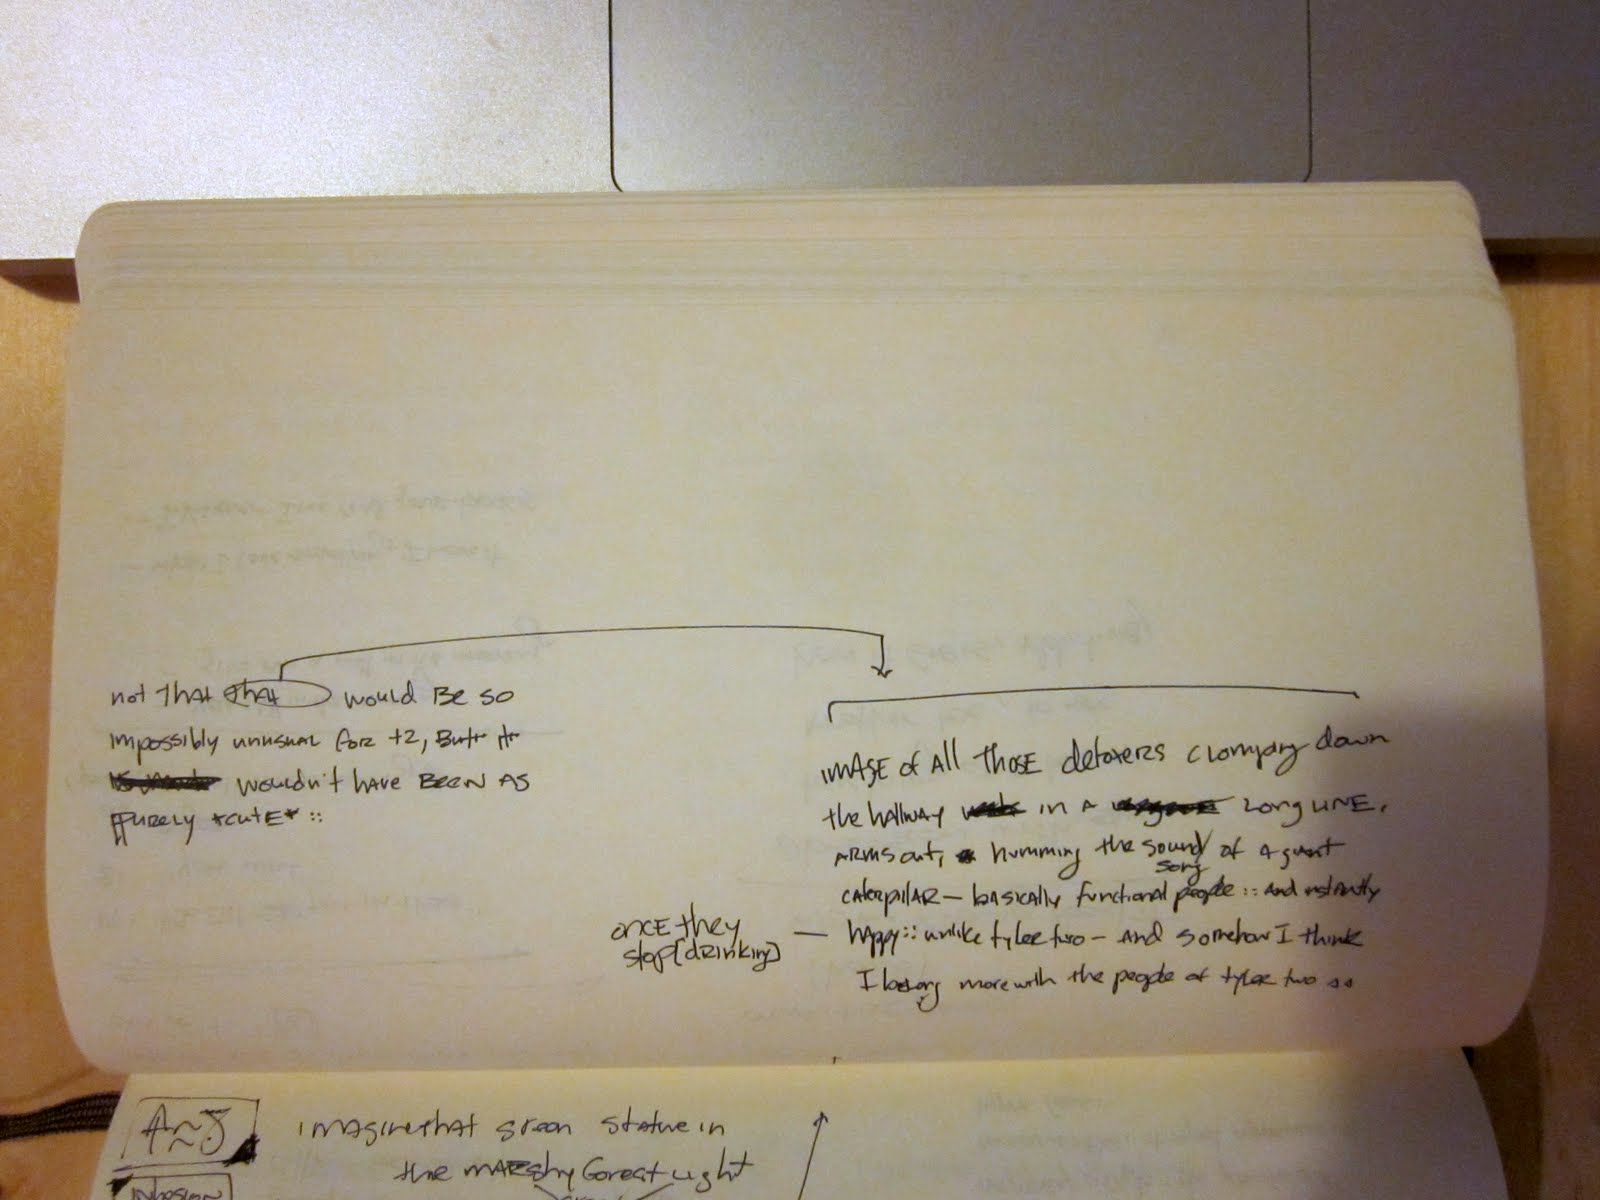 not that that would be so
impossibly unusual for t2, but it
wouldn't have been as
purely *cute* ::
image of all those detoxers clomping down
the hallway in a long line,
arms out, humming the sound/
song
of a giant
caterpillar — basically functional people :: and instantly
once they
stop [drinking]
— happy :: unlike tyler two — and somehow I think
I belong more with the people of tyler two ::
A~J
imagine that green statue in
the marshy forest light